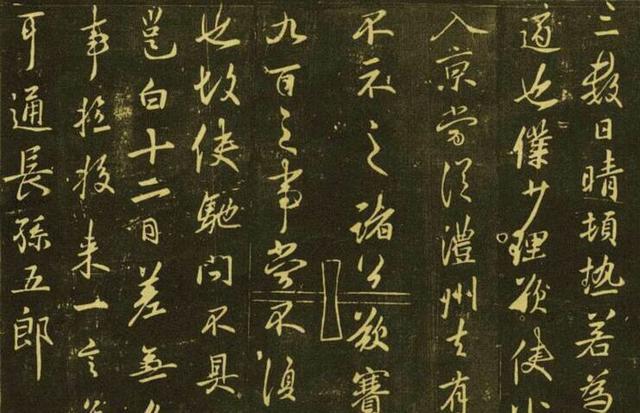 三數日晴頓熱若為
適也僕少理欲使
入京當從澧州去有
不示之諸公欲賽
九百之事當不須
也故使馳問不具
邕白十二日差無
事投来一
耳通長孫五郎